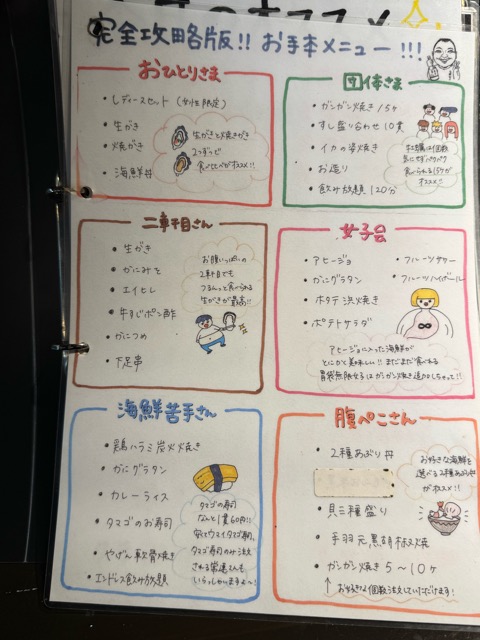 完全攻略版!! お手本メニュー !!!
おひとりさま
・レディースセット (女性限定)
・生がき
・焼がき
・海鮮丼
生がきと焼きがき
2つずつで
食べ比べがオススメ!!
団体さま
・ガンガン焼き 15ヶ
・すし盛り合わせ 10貫
・イカの姿焼き
・お造り
・飲み放題 120分
牡蠣は個数
気にせずパクパク
食べられる15ヶが
オススメ!!
二軒目さん
・生がき
・かにみそ
・エイヒレ
・牛すじポン酢
・かにつめ
・下足串
お腹いっぱいの
2軒目でも
つるんっと食べられる
生がきが最高!!
女子会
・アヒージョ
・かにグラタン
・ホタテ浜焼き
・ポテトサラダ
・フルーツサワー
・フルーツハイボール
アヒージョに入った海鮮が
とにかく美味しい!! まだまだ食べれる
胃袋無限女子はガンガン焼き追加しちゃって!!
海鮮苦手さん
・鶏ハラミ炭火焼き
・かにグラタン
・カレーライス
・タマゴのお寿司
・やげん軟骨焼き
・エンドレス飲み放題
タマゴの寿司
なんと1貫60円!!
安くてウマイタマゴ寿司。
タマゴ寿司のみ注文
される常連さんも
いらっしゃいますよ〜!
腹ぺこさん
・2種あぶり丼
・貝三種盛り
・手羽元黒胡椒焼
・ガンガン焼き 5～10ヶ
↑ お好きな個数注文していただけます!
お好きな海鮮を
選べる2種あぶり丼
がオススメ!!